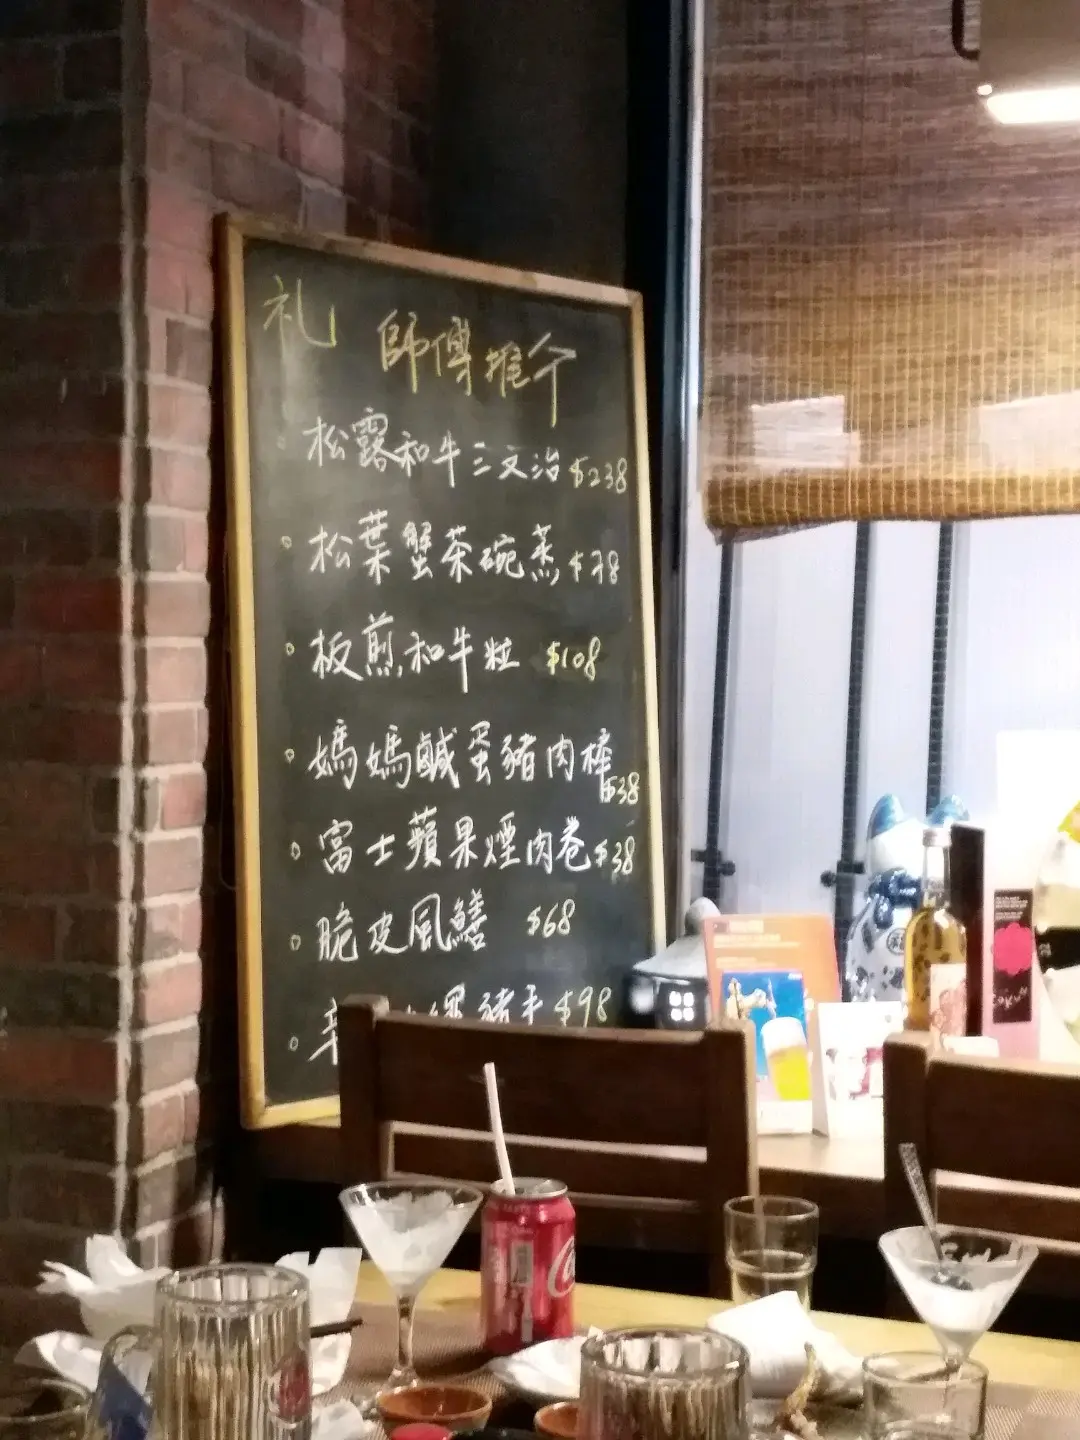 礼 師傅推介
松露和牛三文治 $238
松葉蟹茶碗蒸 $78
板煎和牛粒 $108
媽媽鹹蛋豬肉棒 $38
富士蘋果煙肉卷 $38
脆皮風鱔 $68
豬手 $98